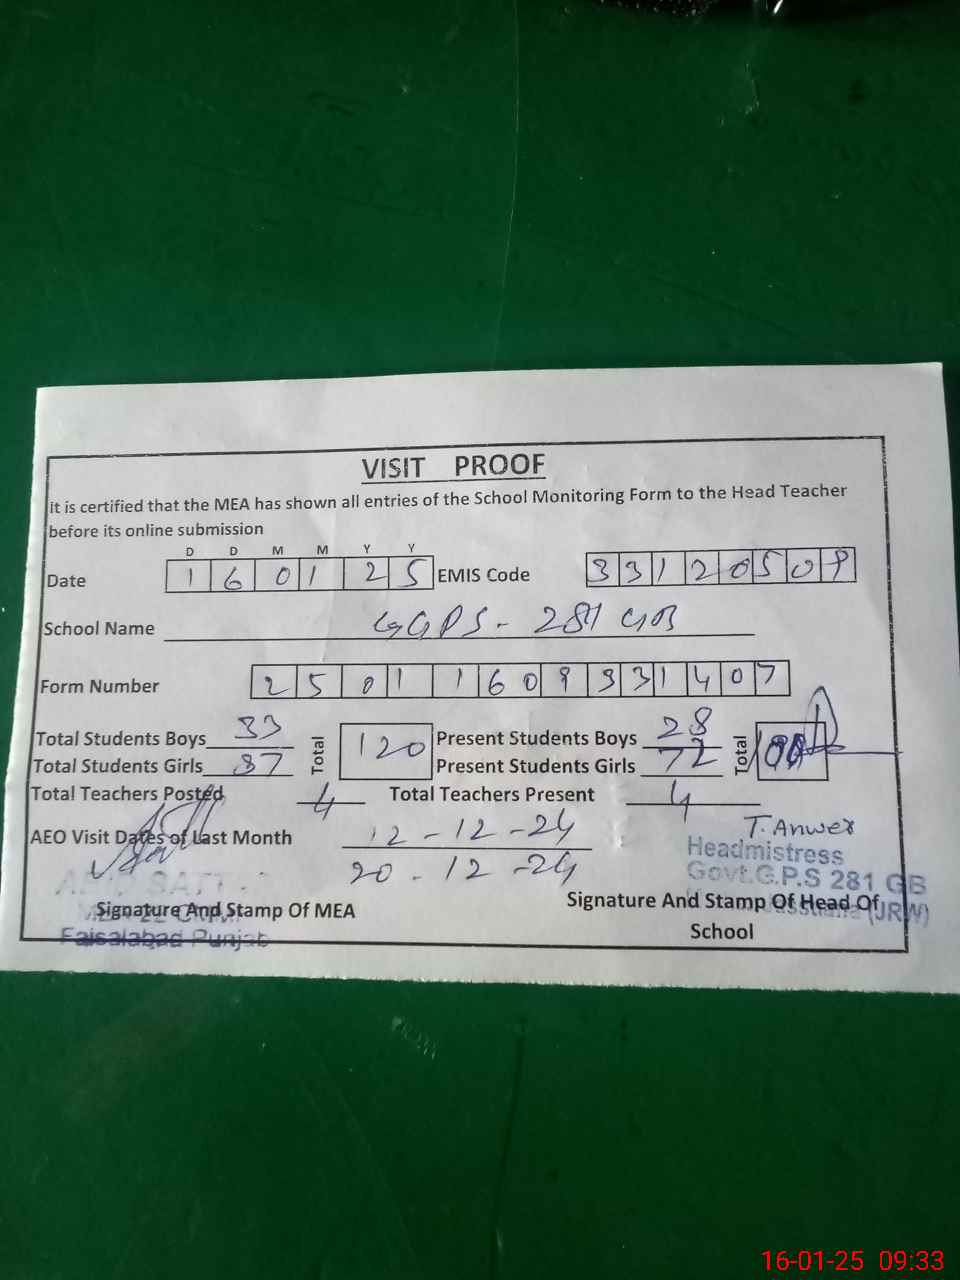 VISIT PROOF
it is certified that the MEA has shown all entries of the School Monitoring Form to the Head Teacher
before its online submission
D D M M Y Y
Date 1 6 0 1 2 5 EMIS Code 3 3 1 2 0 5 0 9
School Name GGPS - 281 GB
Form Number 2 5 0 1 1 6 0 9 3 3 1 4 0 7
Total Students Boys 33 Total 120 Present Students Boys 28 Total
Total Students Girls 87 Present Students Girls 72
Total Teachers Posted 4 Total Teachers Present 4
AEO Visit Dates of Last Month 12 - 12 - 24
20 - 12 - 24
T. Anwer
Headmistress
Govt.G.P.S 281 GB
(JRW)
Signature And Stamp Of MEA
Faisalabad Punjab
Signature And Stamp Of Head Of
School
16-01-25 09:33